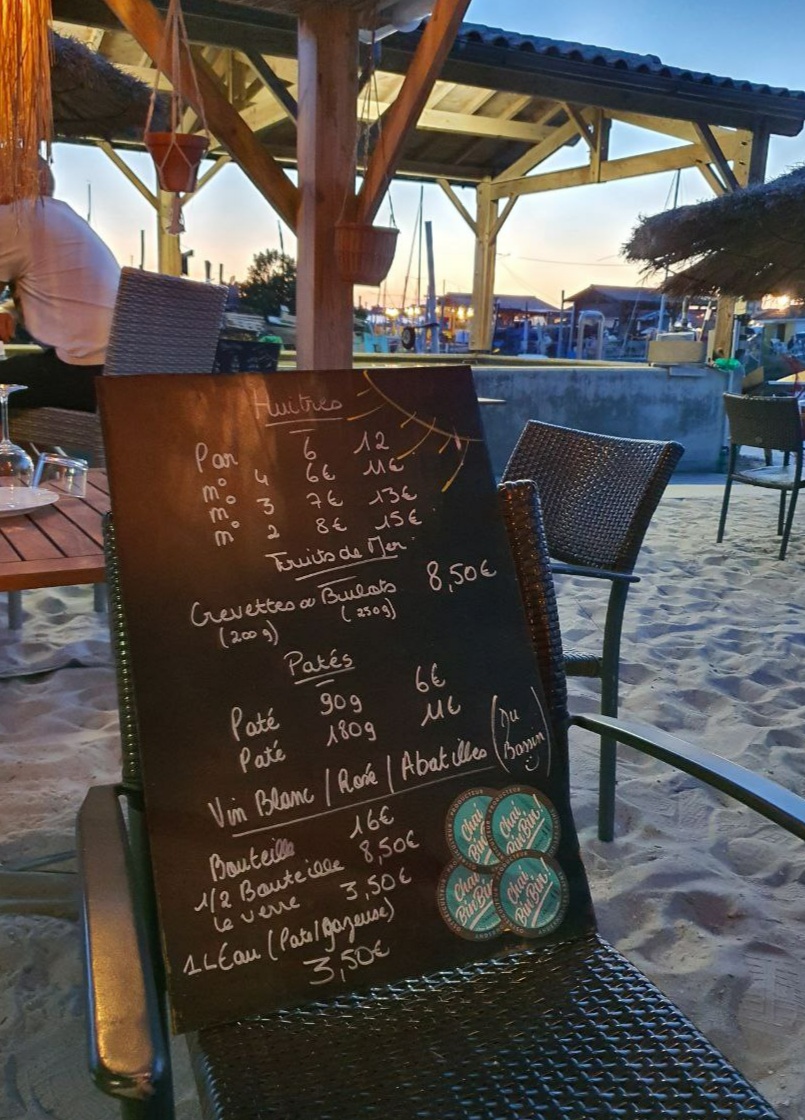 Huitres
Par 6 12
m° 4 6€ 11€
m° 3 7€ 13€
m° 2 8€ 15€
Fruits de Mer
Crevettes ou Bulots 8,50€
(200g) (250g)
Patés
Paté 90g 6€
Paté 180g 11€
Vin Blanc / Rosé / Abatilles (Du Bassin)
Bouteille 16€
1/2 Bouteille 8,50€
Le verre 3,50€
1L Eau (Pate/Gazeuse)
3,50€
Chai
Bin
Chai,
BinBin!
Chai,
BinBin
Chai,
BinBin!